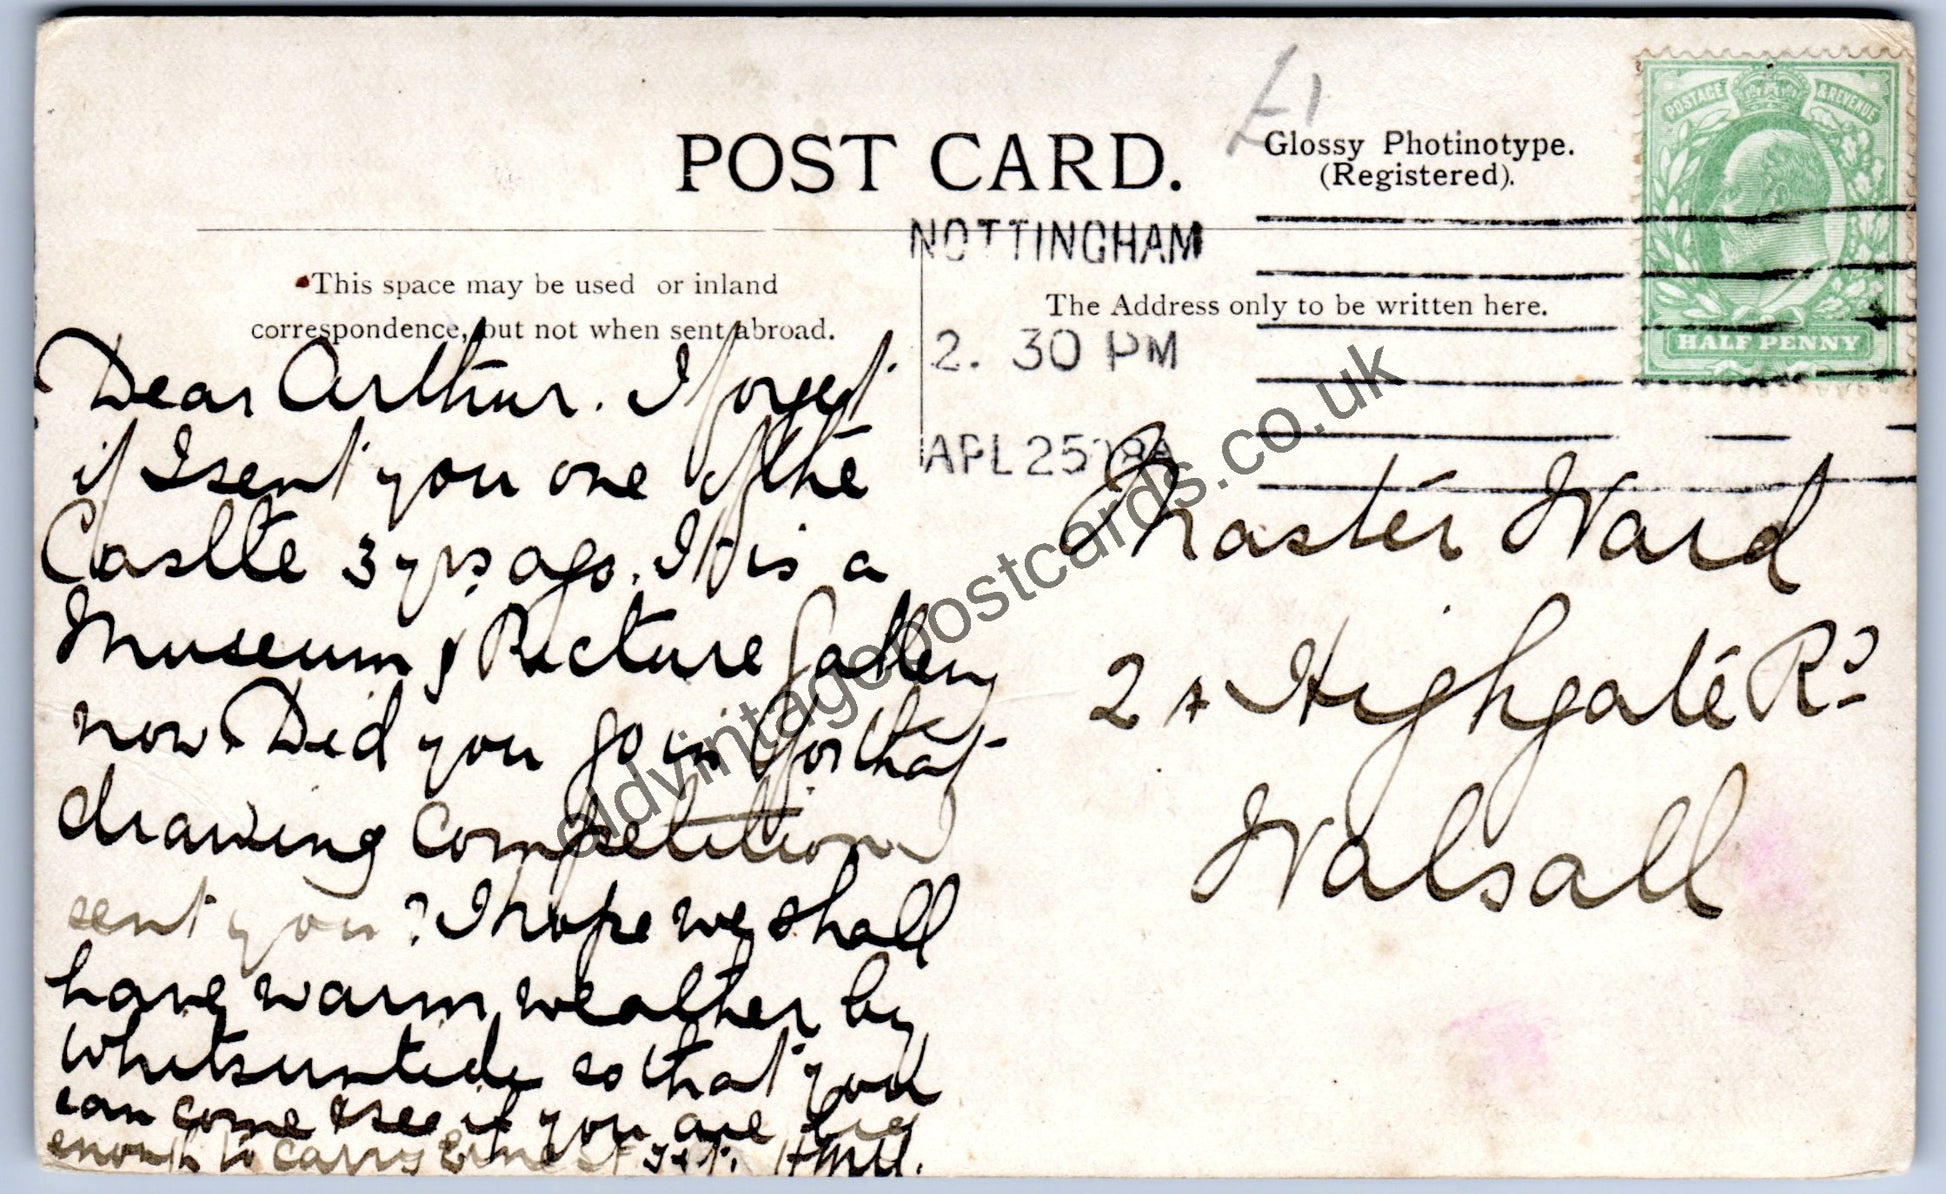 £1
POST CARD.
Glossy Photinotype.
(Registered).
POSTAGE & REVENUE
HALF PENNY
NOTTINGHAM
2. 30 PM
APL 25 08
This space may be used or inland
correspondence, but not when sent abroad.
The Address only to be written here.
Dear Arthur. I forget
if I sent you one of the
Castle 3 yrs ago. It is a
Museum & Picture Gallery
now. Did you go in for that
drawing Competition I
sent you? I hope we shall
have warm weather by
Whitsuntide so that you
can come & see if you are big
enough to carry yet.
Master Ward
2 Highgate Rd
Walsall
oldvintagepostcards.co.uk